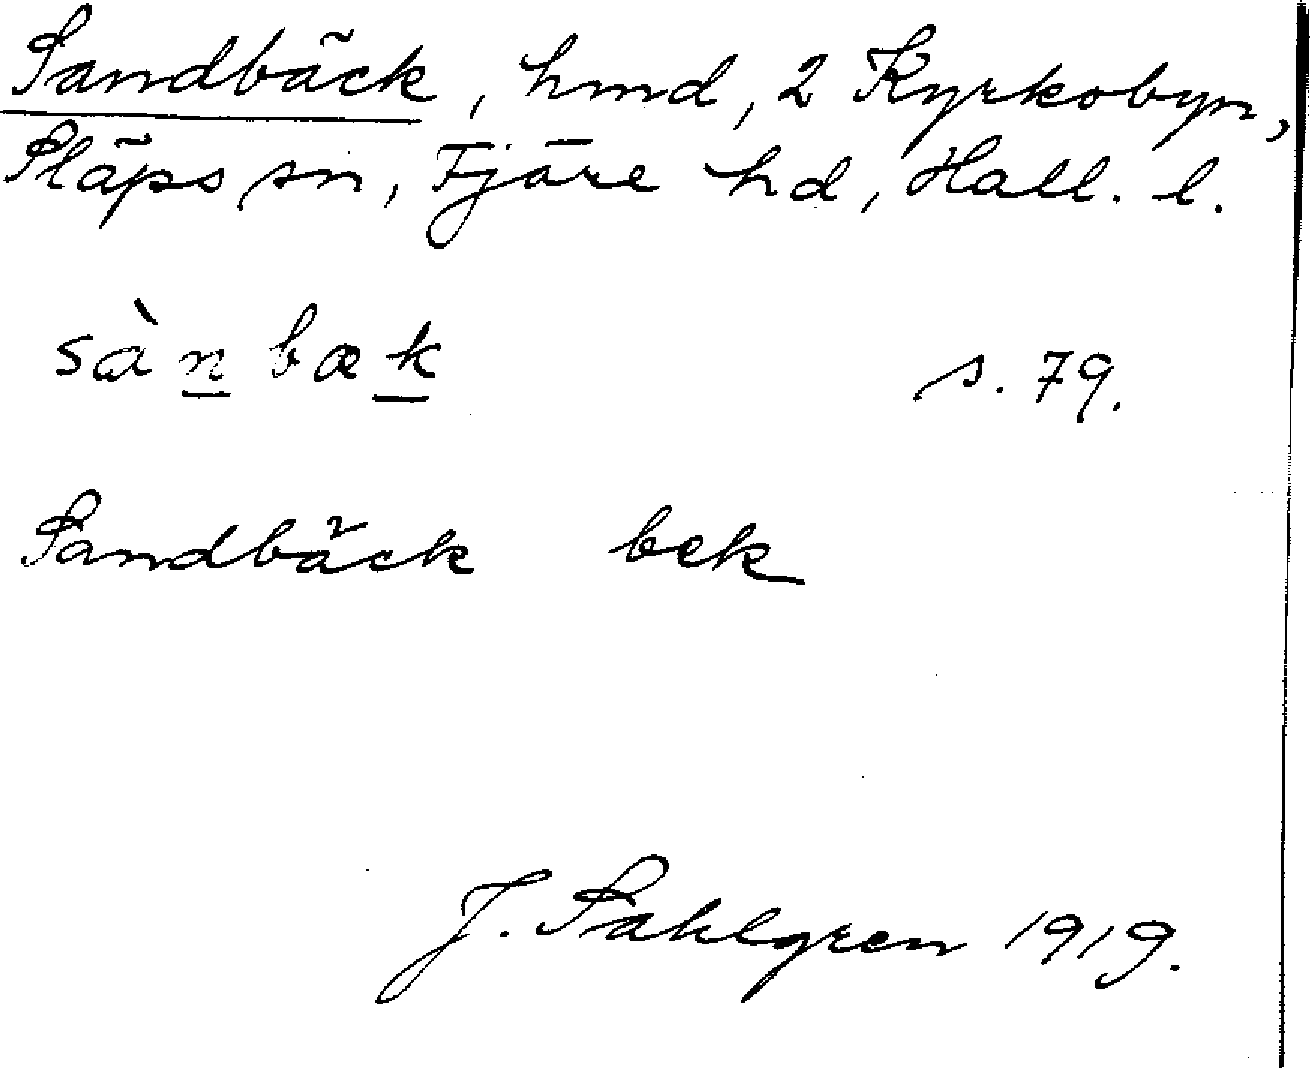 Sandbäck, hmd, 2 Kyrkobyn,
Släps sn, Fjäre hd, Hall. l.
sànbæk s. 79.
Sandbäck bek
J. Sahlgren 1919.